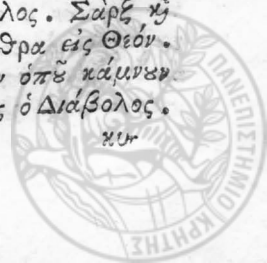 λος. Σὰρξ ϗ
θρα εἰς Θεόν.
ν ὁποῦ κάμνουν
ς ὁ Διάβολος.
κυ-
ΠΑΝΕΠΙΣΤΗΜΙΟ ΚΡΗΤΗΣ